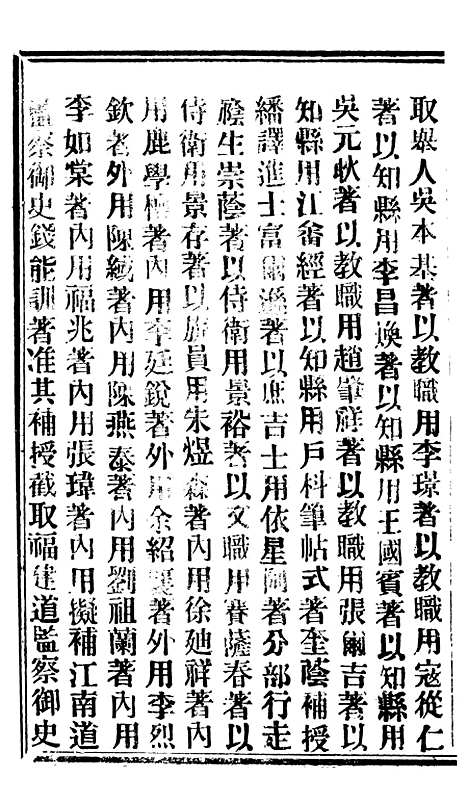 取舉人吳本基著以教職用李璟著以教職用寇從仁
著以知縣用李昌煥著以知縣用王國賓著以知縣用
吳元炊著以教職用趙肇祥著以教職用張爾吉著以
知縣用江畬經著以知縣用戶科筆帖式著奎蔭補授
繙譯進士富爾遜著以庶吉士用依星阿著分部行走
廕生崇蔭著以侍衛用景裕著以文職用賽薩春著以
侍衛用景存著以旗員用朱煜森著內用徐廸祥著內
用鹿學著內用李廷銳著外用余紹襄著外用李烈
欽著外用陳緘著內用陳燕泰著內用劉祖蘭著內用
李如棠著內用福兆著內用張瑋著內用擬補江南道
監察御史錢能訓著准其補授截取福建道監察御史